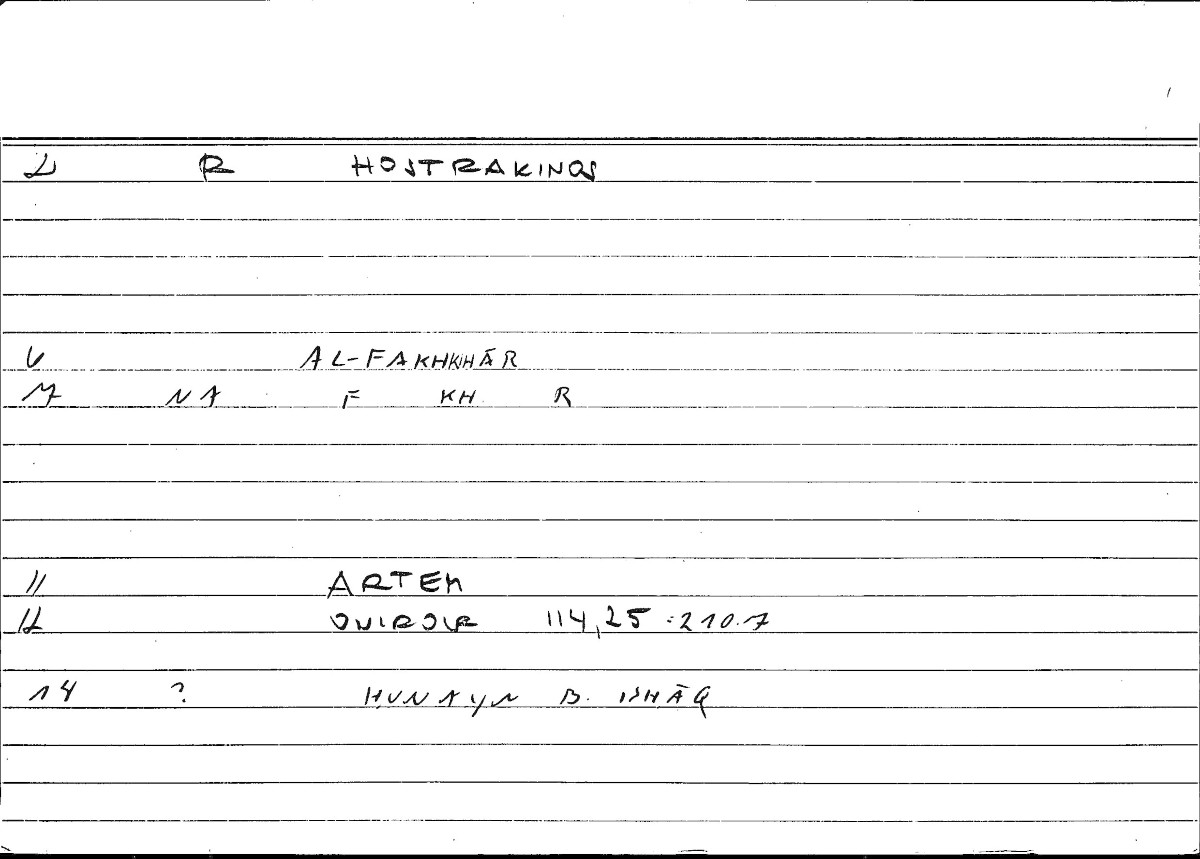 R HOSTRAKINOS
6 AL-FAKHKHĀR
7 NA F KH R
11 ARTEM
12 ONIROCR 114,25 : 210.7
14 ? HUNAYN B. ISHĀQ